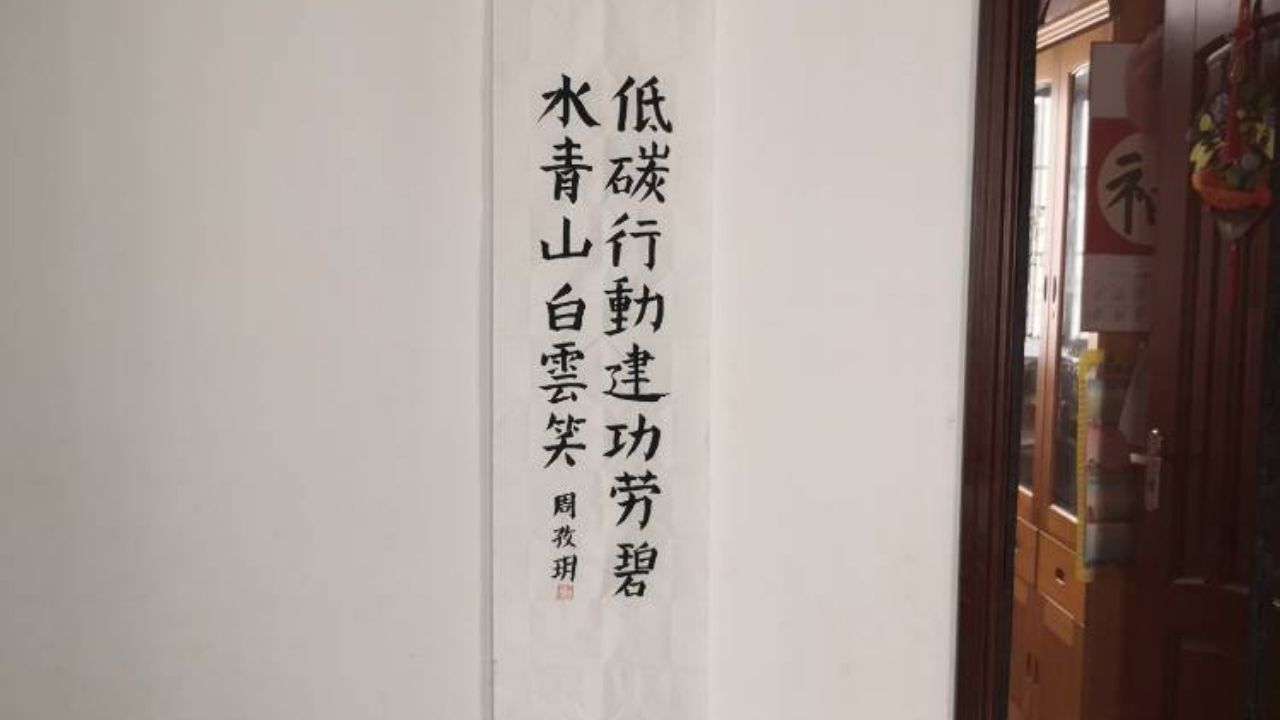 低碳行動建功劳碧
水青山白雲笑
周孜玥